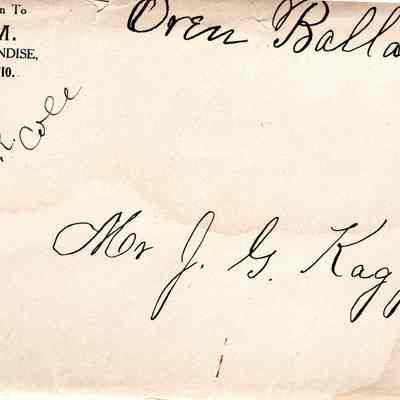 n To
M.
NDISE,
IO.
Oren Balla
Cole
Mr J. G. Kagg